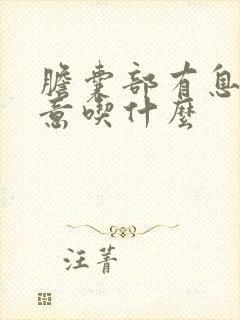 膽囊部有息
意喫什麼
汪菁